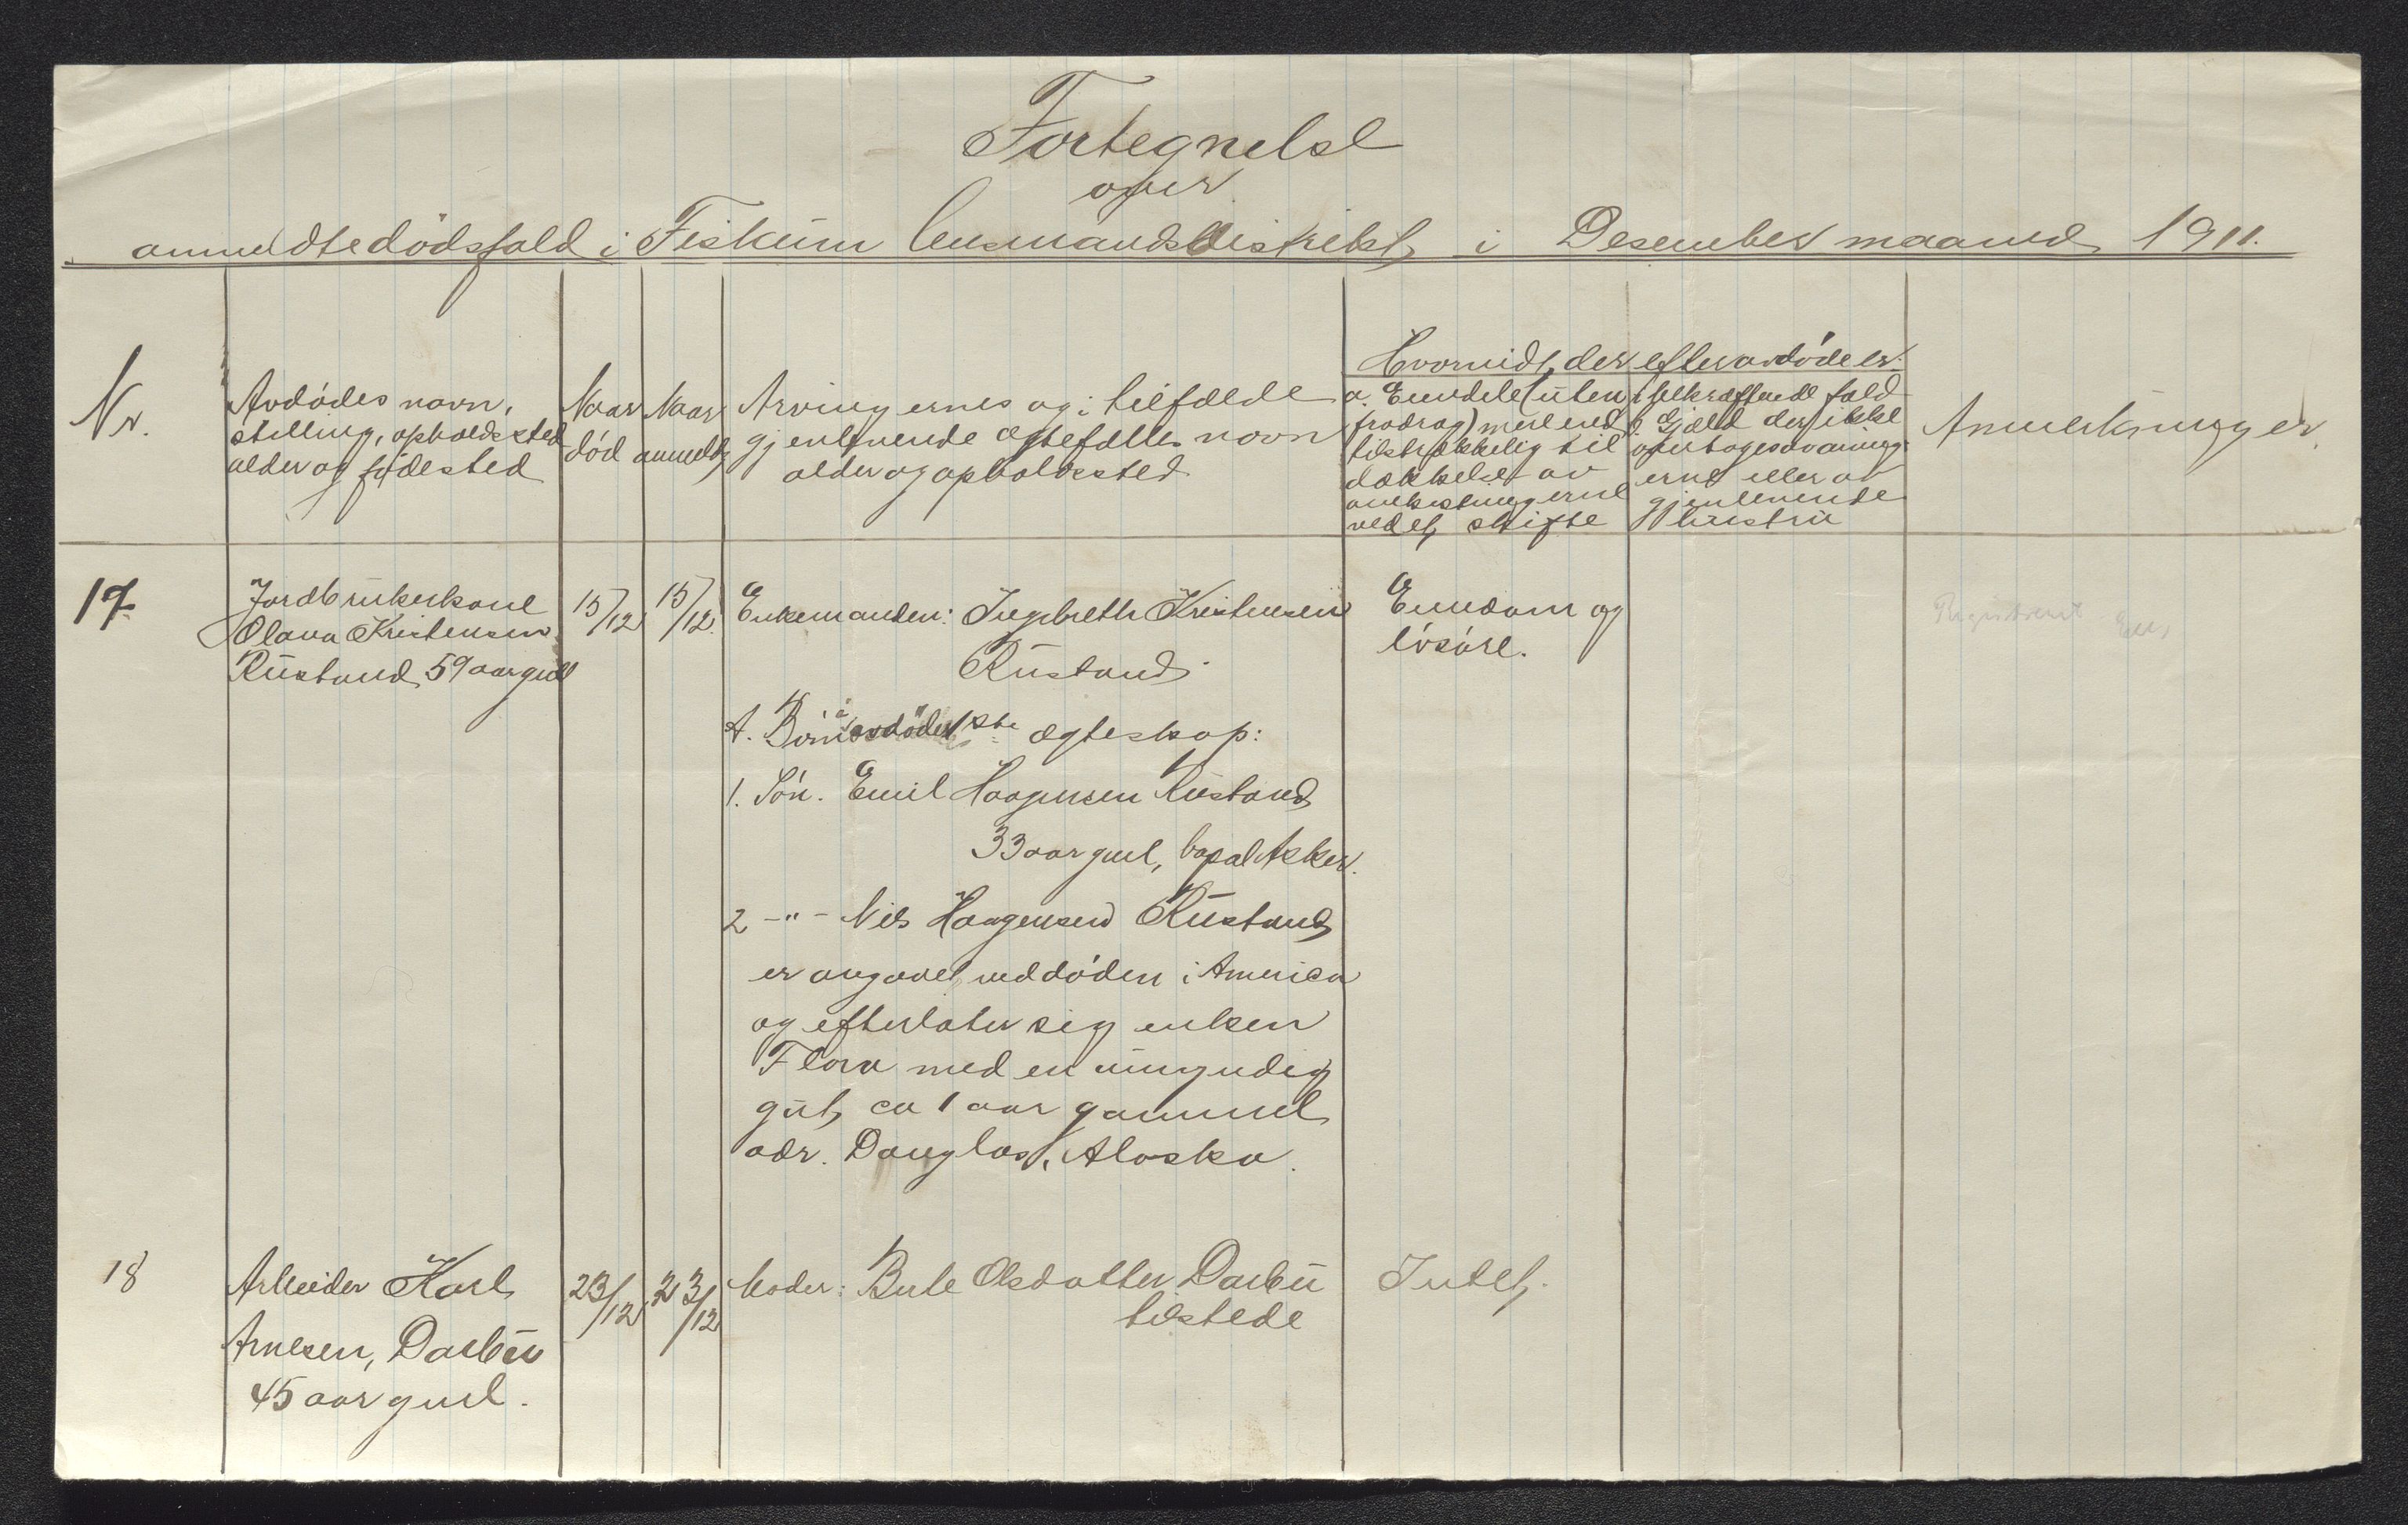 Fortegnelse
over
anmeldte dødsfald i Fiskum lensmandsdistrikt i Desember maaned 1911.
Nr.
Avdødes navn,
stilling, opholdssted
alder og fødested
Naar
død
Naar
anmeldt
Arvingernes og i tilfælde
gjenlevende ægtefælles navn
alder og opholdssted
Hvorvidt der efter avdøde er:
a. Eiendele (uten
fradrag) mere end
tilstrækkelig til
dækkelse av
omkostningerne
ved et skifte
i bekræftende fald
b. Gjæld der ikke
overtages av arving-
erne eller av
gjenlevende
hustru
Anmerkninger
17.
Jordbrukerkone
Olava Kristensen
Rustand 59 aar gml
15/12
15/12.
Enkemanden: Ingebreth Kristensen
Rustand
A. Børn i avdødes 1ste ægteskap:
1. Søn. Emil Haagensen Rustand
33 aar gml, bopæl Aker.
2 -"- Nils Haagensen Rustand
er avgaaet ved døden i America
og efterlater sig enken
Flora med en umyndig
gut, ca 1 aar gammel
adr. Douglas, Alaska.
Eiendom og
løsøre.
Registrert
18
Arbeider Karl
Arnesen, Darbu
45 aar gml.
23/12
23/12
Moder: Berte Olsdatter Darbu
tilstede
Intet.